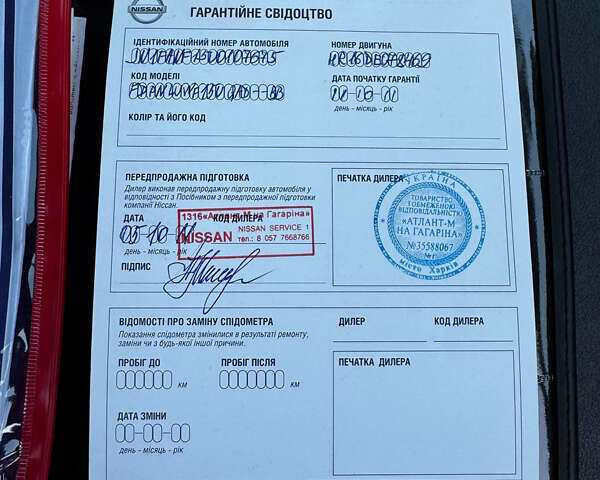 NISSAN
ГАРАНТІЙНЕ СВІДОЦТВО
ІДЕНТИФІКАЦІЙНИЙ НОМЕР АВТОМОБІЛЯ
НОМЕР ДВИГУНА
КОД МОДЕЛІ
ДАТА ПОЧАТКУ ГАРАНТІЇ
день - місяць - рік
КОЛІР ТА ЙОГО КОД
ПЕРЕДПРОДАЖНА ПІДГОТОВКА
Дилер виконав передпродажну підготовку автомобіля у
відповідності з Посібником з передпродажної підготовки
компанії Ніссан.
ДАТА
КОД ДИЛЕРА
1316«Атлант-М на Гагаріна»
NISSAN
NISSAN SERVICE 1
тел.: 8 057 7668766
день - місяць - рік
ПІДПИС
ПЕЧАТКА ДИЛЕРА
УКРАЇНА
ТОВАРИСТВО
З ОБМЕЖЕНОЮ
ВІДПОВІДАЛЬНІСТЮ
«АТЛАНТ-М
НА ГАГАРІНА»
№35588067
№1
місто Харків
ВІДОМОСТІ ПРО ЗАМІНУ СПІДОМЕТРА
Показання спідометра змінилися в результаті ремонту,
заміни чи з будь-якої іншої причини.
ДИЛЕР
КОД ДИЛЕРА
ПРОБІГ ДО
ПРОБІГ ПІСЛЯ
КМ
КМ
ПЕЧАТКА ДИЛЕРА
ДАТА ЗМІНИ
день - місяць - рік